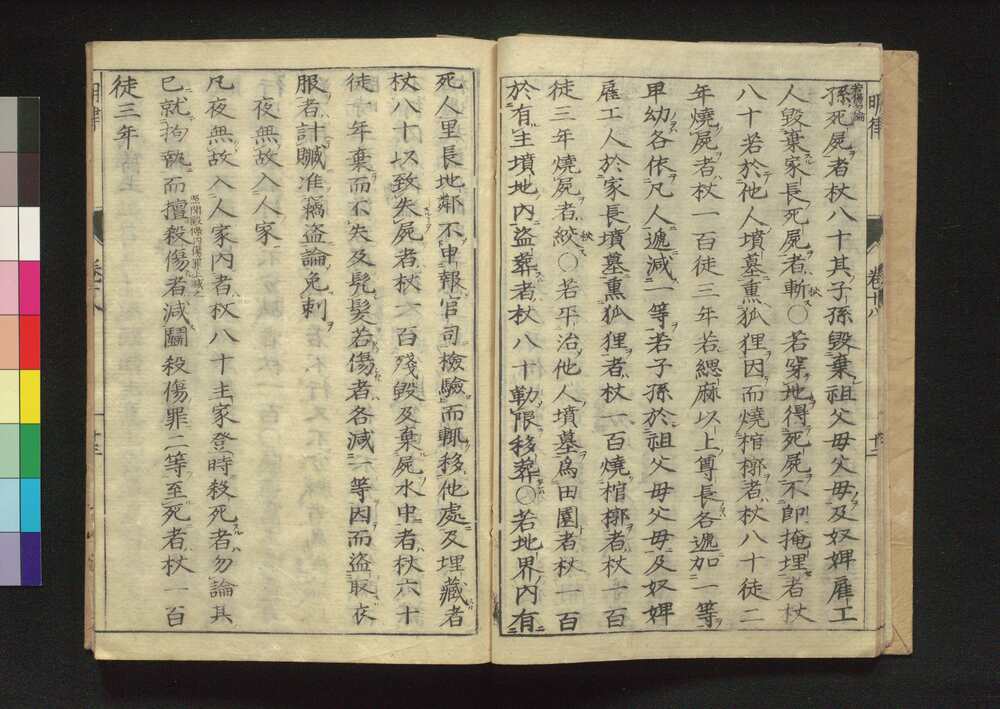 孫死屍者杖八十其子孫毀棄祖父母父母及奴婢雇工
人毀棄家長死屍者斬○若穿地得死屍不即掩埋者杖
八十若於他人墳墓熏狐狸因而燒棺槨者杖八十徒二
年燒屍者杖一百徒三年若緦麻以上尊長各遞加一等
卑幼各依凡人遞減一等若子孫於祖父母父母及奴婢
雇工人於家長墳墓熏狐狸者杖一百燒棺槨者杖一百
徒三年燒屍者絞○若平治他人墳墓爲田園者杖一百
於有主墳地内盜葬者杖八十勒限移葬○若地界内有
死人里長地鄰不申報官司檢驗而輒移他處及埋藏者
杖八十以致失屍者杖一百殘毀及棄屍水中者杖六十
徒一年棄而不失及髡髮若傷者各減一等因而盜取衣
服者計贓准竊盜論免刺
夜無故入人家
凡夜無故入人家内者杖八十主家登時殺死者勿論其
已就拘執而擅殺傷者減鬭殺傷罪二等至死者杖一百
徒三年
明律
卷十八
十三